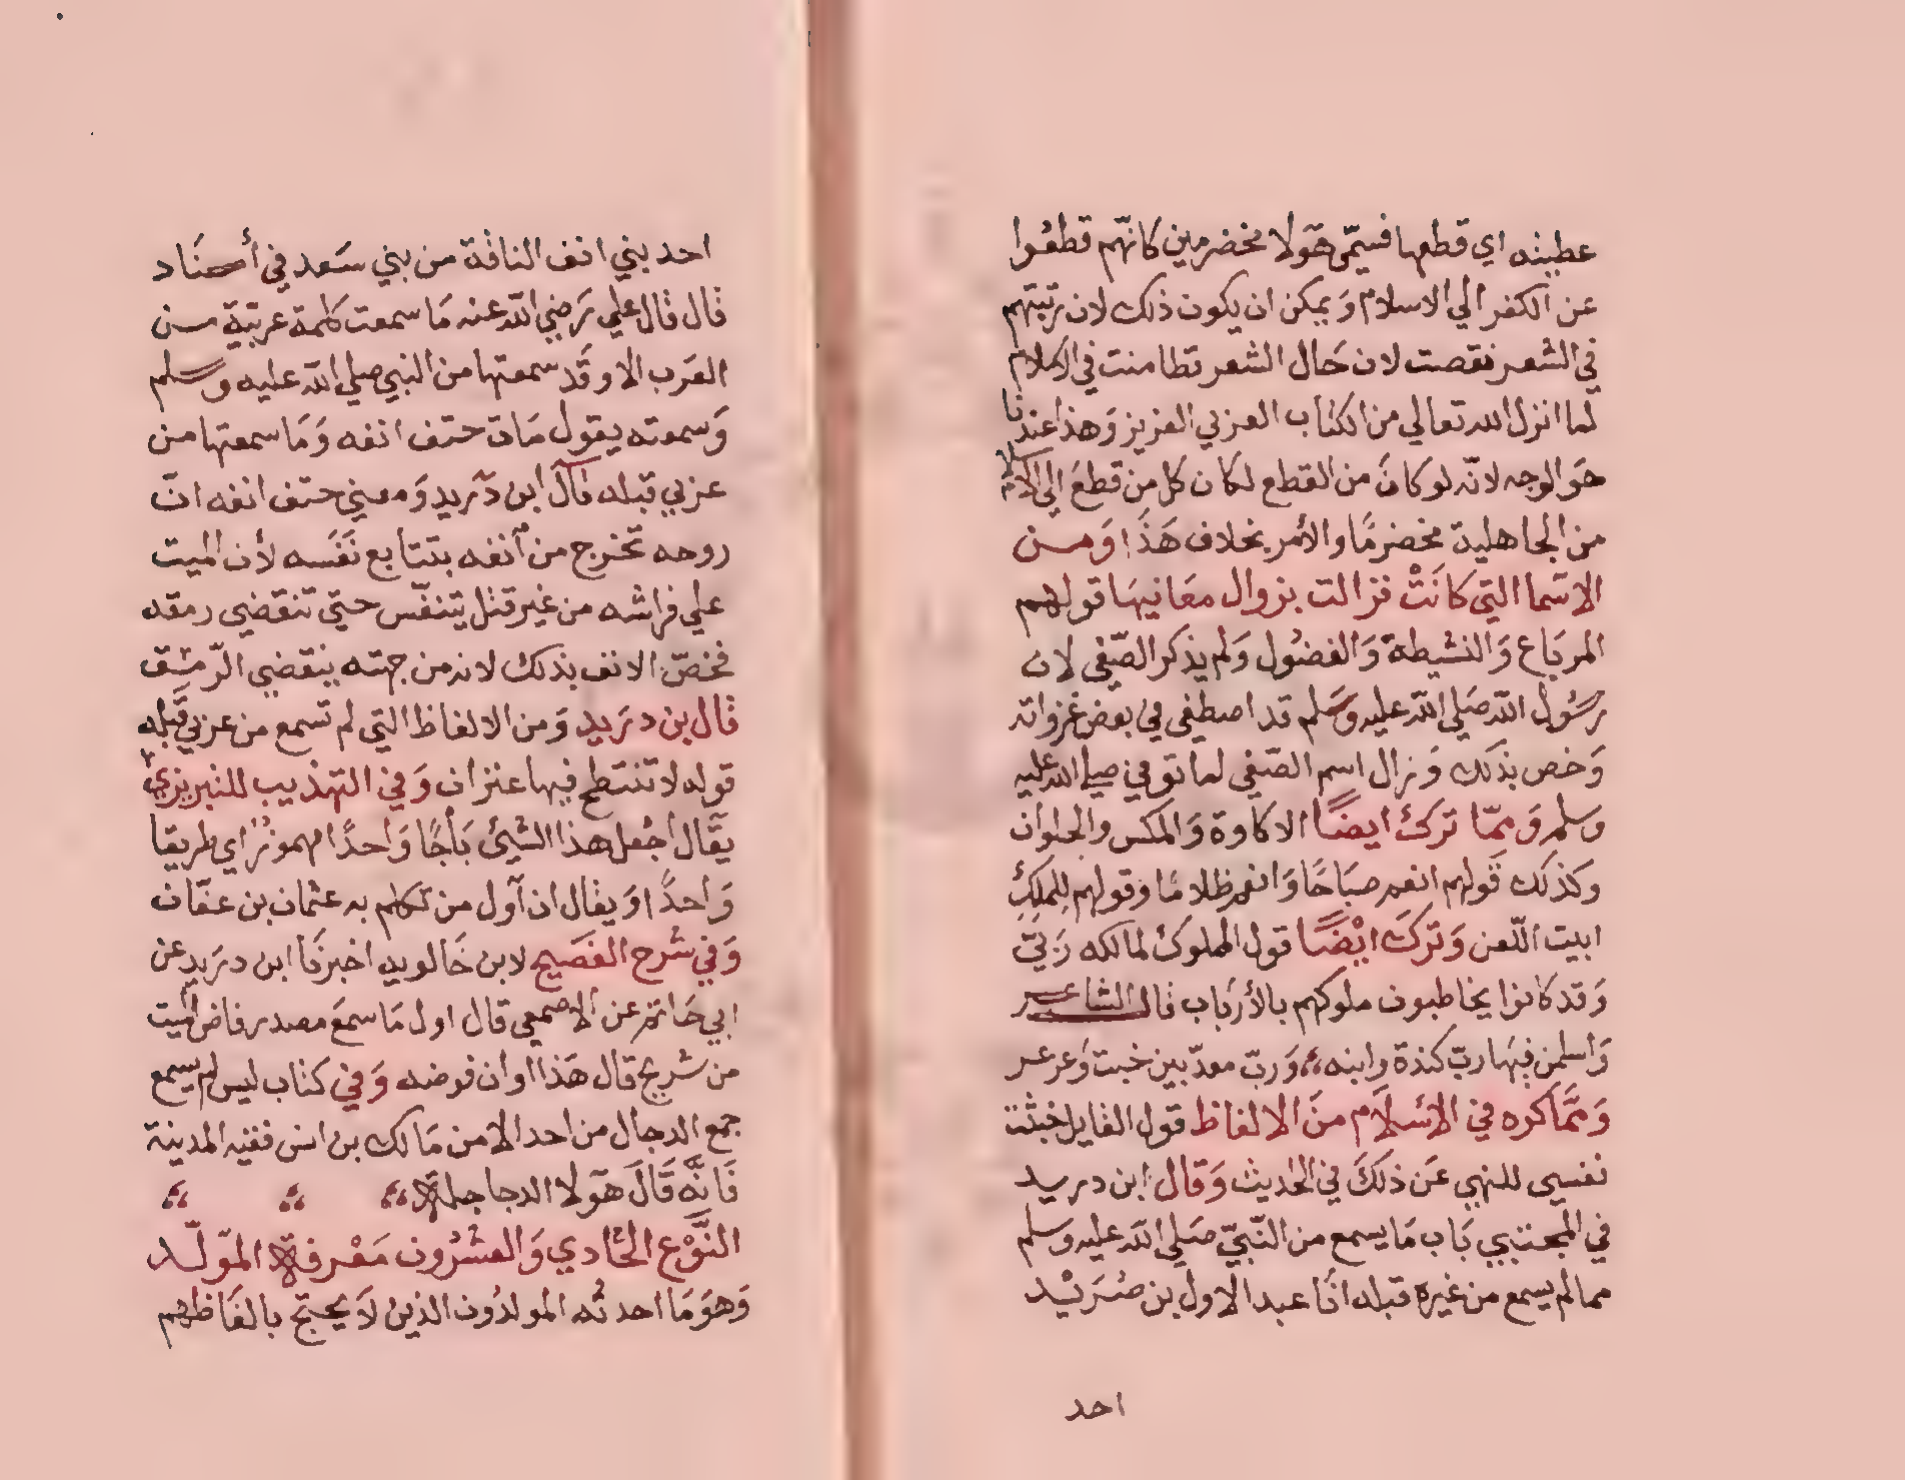 عطيته اي قطعها فسمّى هؤلا مخضرمين كانّهم قطعُوا
عن الكفر الي الاسلام وَيمكن ان يكون ذلك لان رتبتهم
في الشعر نقصت لان حَال الشعر تطامنت في الاسلام
لما انزل الله تعالي من الكتاب العربي العزيز وَهذا عندنا
هوَ الوجه لانّه لو كانَ من القطع لكان كل من قطعَ الي الاسلام
من الجاهلية مخضرمًا والأمر بخلاف هَذَا وَمن
الاسَما التي كانَتْ فزالت بزوال معَانيهَا قولهم
المربَاع وَالنشيطة وَالفضُول وَلم يذكر الصّفي لان
رسُول الله صَلي الله عليه وسَلم قد اصطفي في بعض غزواته
وَخص بذلكَ وَزال اسم الصّفي لما توفي صلي الله عليه
وَسلم وَممّا تركَ ايضًا الاتاوة وَالمكس والحلوان
وكذلك قَولهم انعم صبَاحًا وَانعم ظلامًا وقولهم للملِكِ
ابيت اللّعن وَتركَ ايْضًا قول المملوكُ لمالكه رَبّي
وَقد كانوا يخاطبون ملوكهم بالأربَاب قال الشاعر
وَاسلمن فيهَا ربّ كندة وابنه ،، وَربّ معدّ بين خبت وَعرعر
وَممَّا كره في الاِسْلَام منَ الالفاظ قول القايل خبثت
نفسي للنهي عَن ذلكَ في الحديث وَقال ابن دريد
في المجتبي بَاب مَا يسمع من النّبيّ صَلي الله عليه وسلم
مما لم يسمع من غيره قبله انَا عبد الاول بن مُرَيْد
احد
احد بني انف الناقة من بني سَعد في أسنَاد
قال قال علي رَضي الله عنه مَا سمعت كلمة عربيّة من
العَرب الا وقَد سمعتها من النبي صلي الله عليه وسلم
وَسمعته يقول مَات حتف انفه وَمَا سمعتها من
عربي قبله قال ابن دريد وَمعني حتف انفه انّ
روحه تخرج من أنفه بتتابع نَفَسه لأن الميت
علي فراشه من غير قتل يتنفّس حتي تنقضي رمقه
فخصّ الانف بذلك لانه من جهته ينقضي الرّمق
قال بن دريد وَمن الالفاظ التي لم تسمع من عربي قَبله
قوله لا تنتطح فيها عنزان وَفي التهذيب للتبريزي
يقَال اجْعل هذا الشيئ بَأجًا وَاحدًا مهموزٌ اي طريقا
وَاحدًا وَيقال ان أول من تكلم به عثمان بن عفّان
وَفي شرح الفصَيح لابن خَالويه اخبرنَا ابن دريد عن
ابي حَاتم عن الاصمعي قال اول مَا سمعَ مصدر فاض الميت
من شريح قال هَذا اوان فوضه وَفي كتاب ليس لم يسمع
جمع الدجال من احد الا من مَالك بن انس فقيه المدينة
فَانَّه قَالَ هَؤلا الدجاجلة ،، ،، ،،
النَّوْع الحَادي وَالعشرُون مَعْرفة المَوّلّد
وَهوَ مَا احدثُه المولدُون الذين لَا يحتج بالفَاظهم